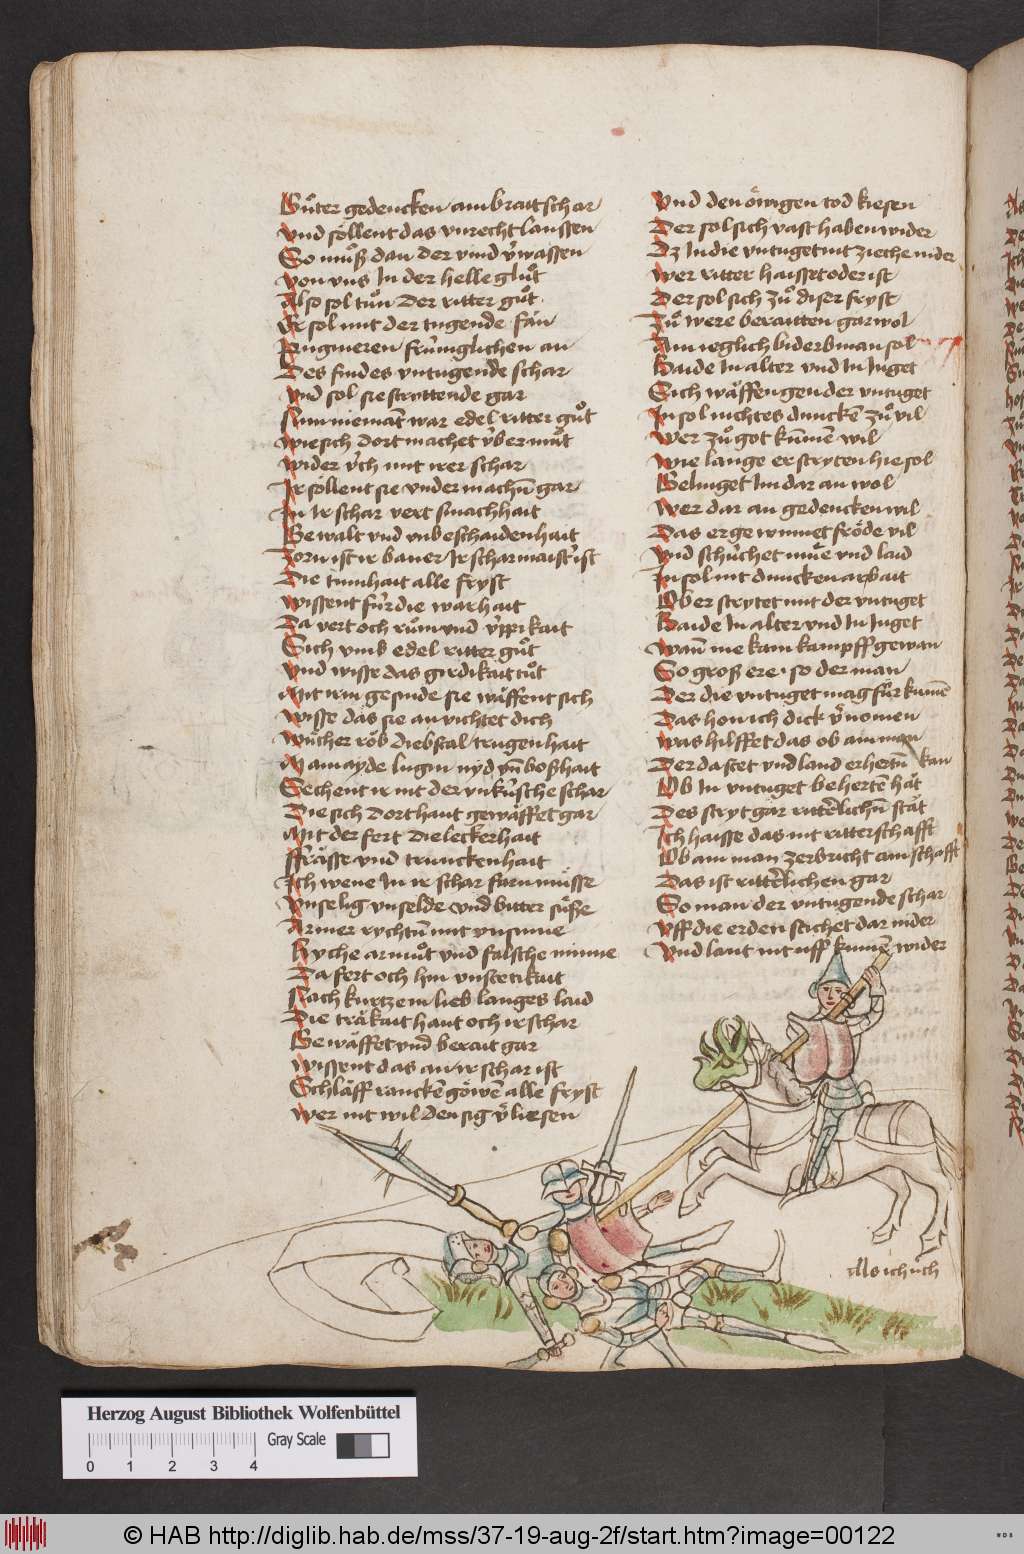 Gůter gedencken ain brait schar
vnd söllent das vnrecht laussen
So můß dan der vind v̂wassen
von vns In der helle glůt
Also sol tůn Der ritter gůt
Er sol mit der tugende fan
Ringineren frümglichen an
Des findes vntugende schar
vnd sol sie stryttende gar
Nun niemāt war edel ritter gůt
wie sich dort machet v̂ber můt
wider v̂ch mit irer schar
Ir sollent sie vnder machn̄ gar
In Ir schar vert smachhait
Gewalt vnd vnbeschaidenhait
Zorn ist ir baner Ir schar maist ist
Die tumhait alle fryst
wissent für die warhait
Da vert och růmm vnd v̂ppikait
Sich vmb edel ritter gůt
vnd wisse das girdikait tůt
Mit irm gesinde sie wäffent sich
wisse das sie an richtet dich
wůcher röb diebstal trugenhait
Mainayde lugin nyd vn̄ boßhait
Sechent ir mit der vnkûsche schar
Die sich dort haut gewäffet gar
Mit der fert die leckerhait
ffrässe vnd trunckenhait
Ich wene In ir schar farn müsse
vnselig vnselde vnd bitter süsse
Armer rychtu͂m mit vnsinne
Ryche armůt vnd falsche minne
Da fert och hin vnstetikait
Nach kurtzem lieb langes laid
Die träkait haut och ir schar
Gewäffet vnd berait gar
wissent das an ir schar ist
Schläff rancken göwen alle fryst
wer nit wil den sig v̂liesen
vnd den öwigen tod kiesen
Der sol sich vast haben wider
Dz In die vntuget nit zieche nider
wer ritter haisset oder ist
Der sol sich zů diser fryst
Zů were beraitten gar wol
Ain ieglich biderb man sol
Baide In alter vnd In Juget
Sich wäffen gen der vntuget
In sol nichtes duncke͂ zů vil
wer zů got ku͂me͂ wil
wie lange er stryten hie sol
Gelinget Im dar an wol
wer dar an gedencken wil
Das er gewinnet fröde vil
vnd schüchet müe vnd laid
In sol nit duncken arbait
Ob er strytet mit der vntuget
Baide In alter vnd In Juget
wan̄ nie kain kampff gewan
So groß ere · so der man
Der die vntuget mag fürkume͂
Das hon ich dick v̂nomen
was hilffet das ob ain man
Der da stet vnd land erhertn̄ kan
Ob In vntuget beherte͂ hat
Des stryt gar ritterlichn̄ stat
Ich haisse das nit ritterschafft
Ob ain man zerbricht ain schafft
Das ist ritterlichen gar
So man der vntugende schar
vff die erden stichet dar nider
vnd laut nit uff kume͂ wider
Als ich uch
Herzog August Bibliothek Wolfenbüttel
Gray Scale
0 1 2 3 4
© HAB http://diglib.hab.de/mss/37-19-aug-2f/start.htm?image=00122